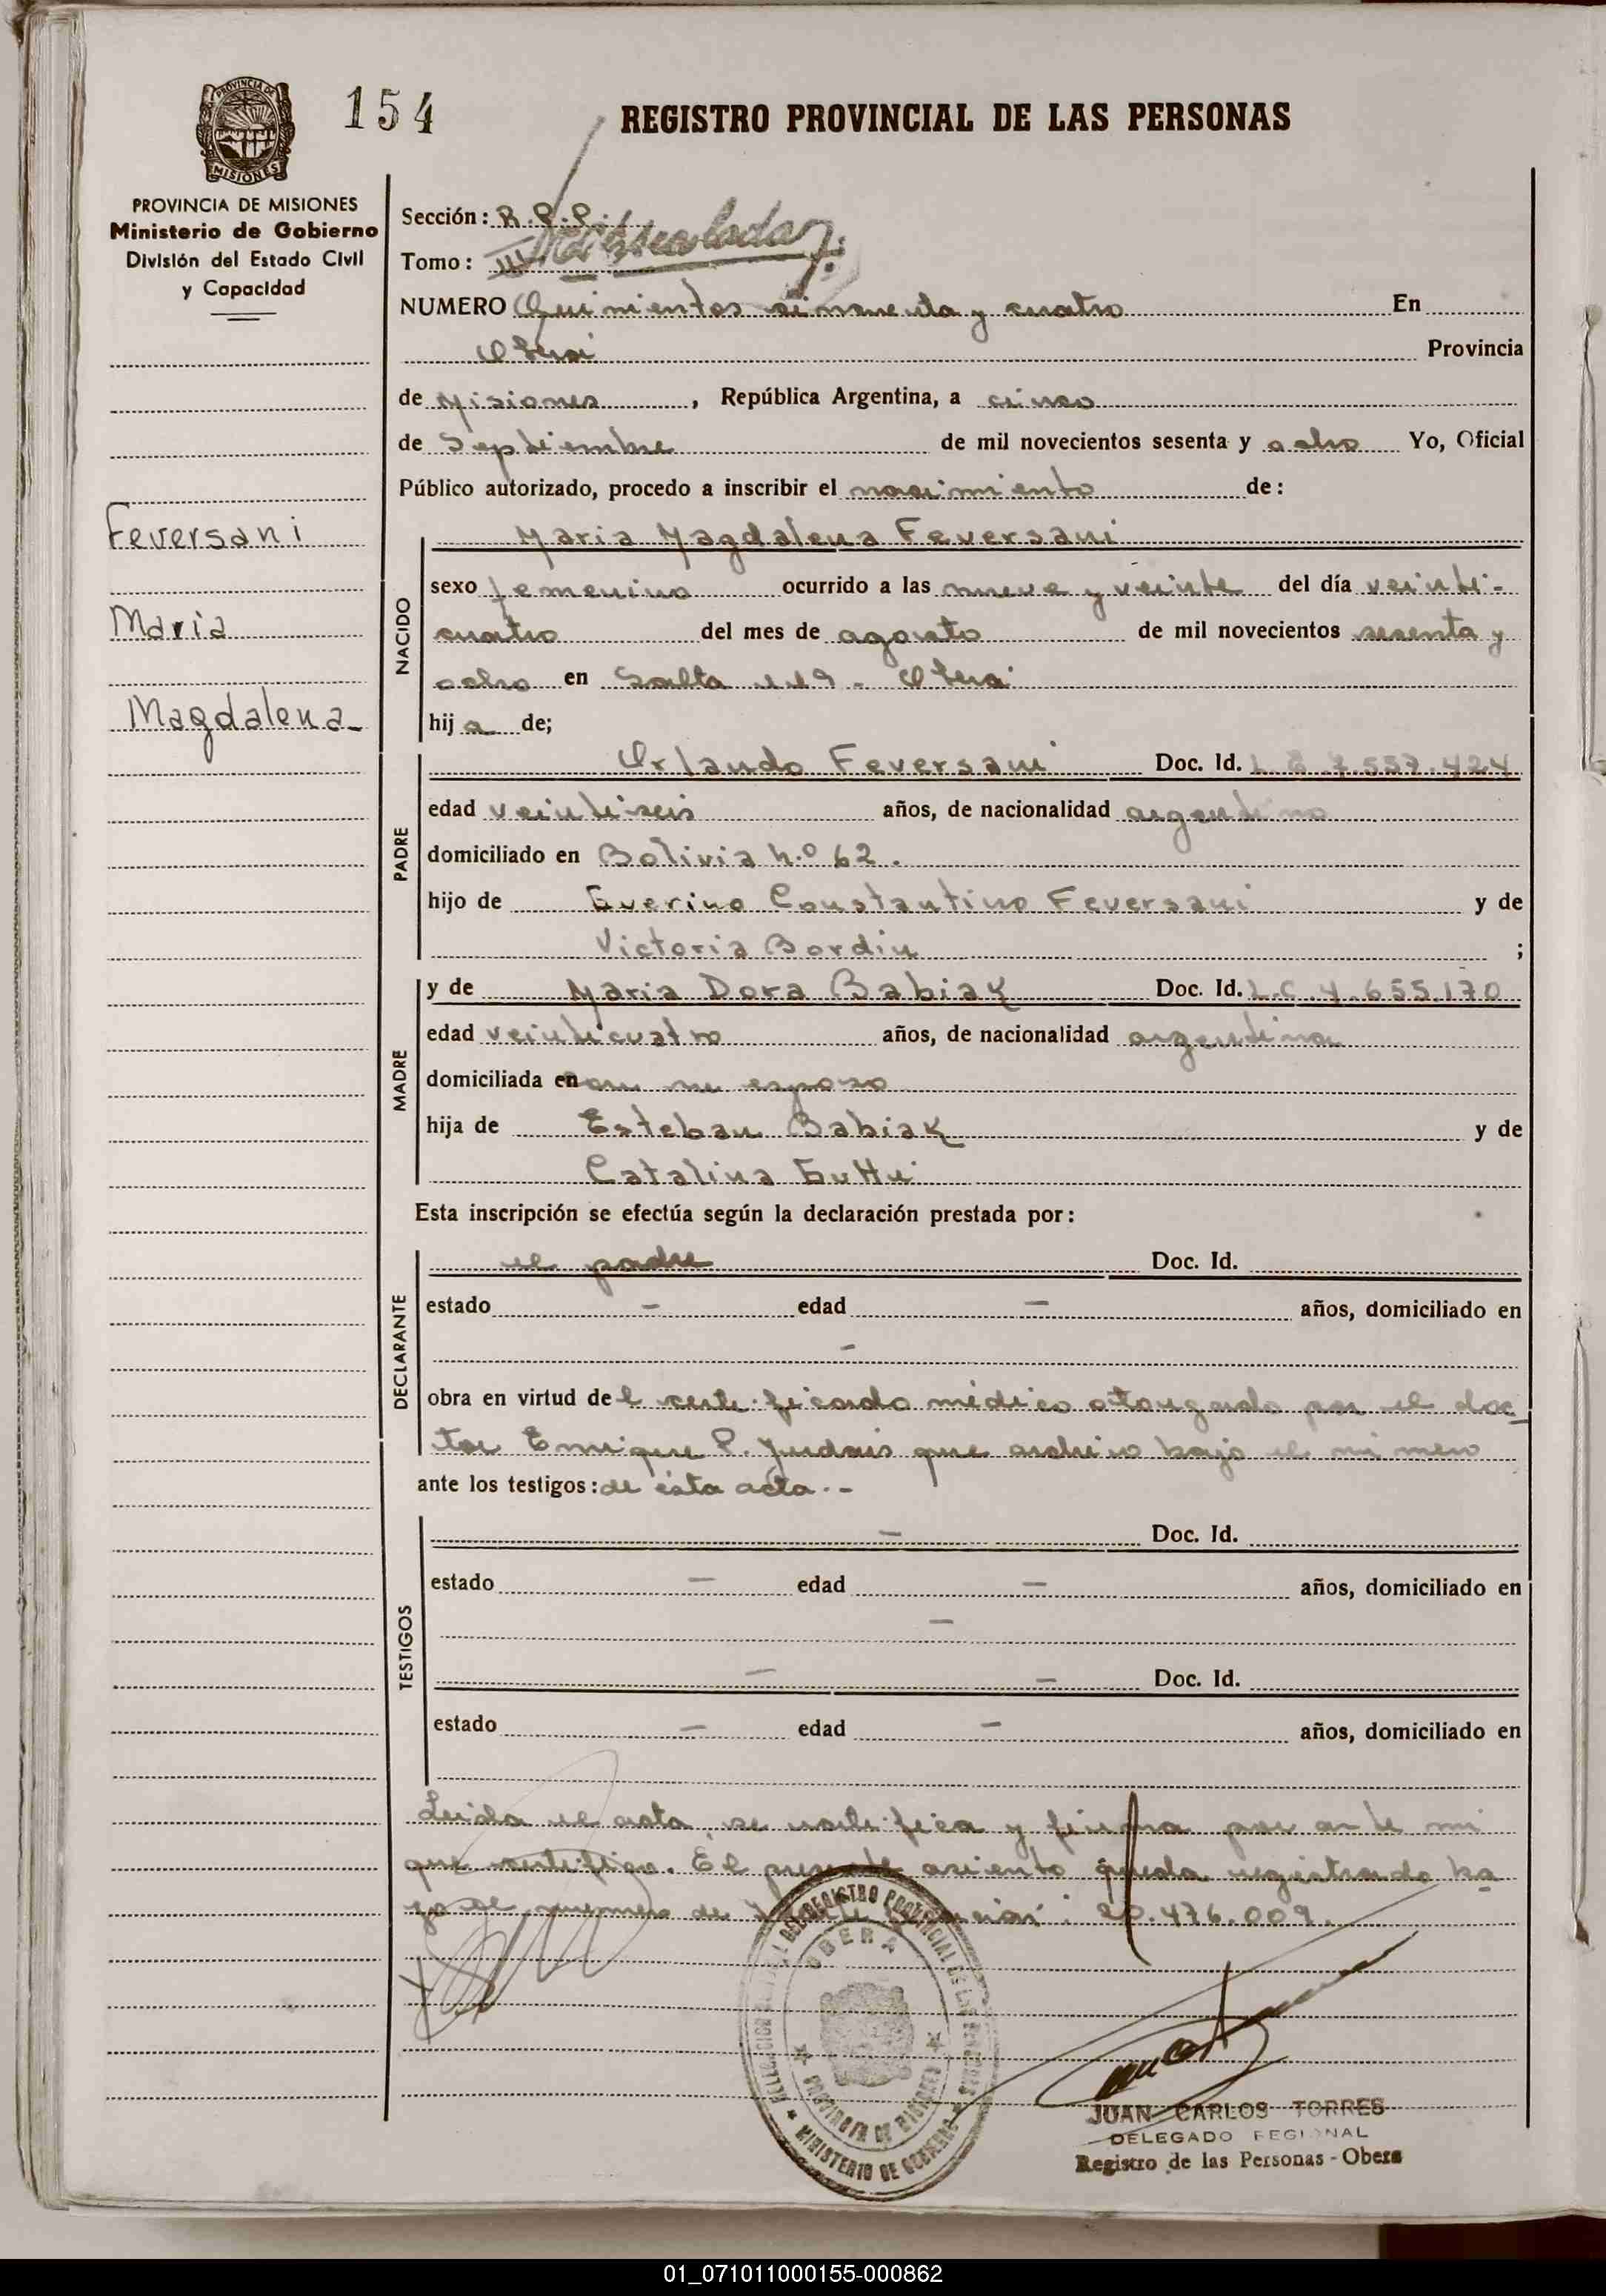 154
REGISTRO PROVINCIAL DE LAS PERSONAS
PROVINCIA DE
MISIONES
PROVINCIA DE MISIONES
Ministerio de Gobierno
División del Estado Civil
y Capacidad
Feversani
Maria
Magdalena
Sección: R.P.P.
Tomo: III
NUMERO Quinientos cincuenta y cuatro En
Oberá Provincia
de Misiones, República Argentina, a cinco
de Septiembre de mil novecientos sesenta y ocho Yo, Oficial
Público autorizado, procedo a inscribir el nacimiento de:
NACIDO
Maria Magdalena Feversani
sexo femenino ocurrido a las nueve y veinte del día veinti-
cuatro del mes de agosto de mil novecientos sesenta y
ocho en Salta 119 - Oberá
hija de;
PADRE
Orlando Feversani Doc. Id. L E 7.557.424
edad veintiseis años, de nacionalidad argentino
domiciliado en Bolivia N.º 62.
hijo de Guerino Constantino Feversani y de
Victoria Bordin ;
MADRE
y de Maria Dora Babiak Doc. Id. L.C. 4.655.170
edad veinticuatro años, de nacionalidad argentina
domiciliada en con su esposo
hija de Esteban Babiak y de
Catalina
Esta inscripción se efectúa según la declaración prestada por:
DECLARANTE
el padre Doc. Id.
estado - edad - años, domiciliado en
-
obra en virtud del certificado médico otorgado por el doc-
tor Enrique P. que archivo bajo el número
ante los testigos: de ésta acta.-
TESTIGOS
- Doc. Id.
estado - edad - años, domiciliado en
-
- - Doc. Id.
estado - edad - años, domiciliado en
Leida el acta, se ratifica y firma por ante mi
que certifico. El presente asiento queda registrado ba
jo el número de : 20.476.009.
DELEGACION DEL REGISTRO PROVINCIAL DE LAS PERSONAS
OBERA
PROVINCIA DE MISIONES
MINISTERIO DE GOBIERNO
JUAN CARLOS TORRES
DELEGADO REGIONAL
Registro de las Personas - Obera
01_071011000155-000862